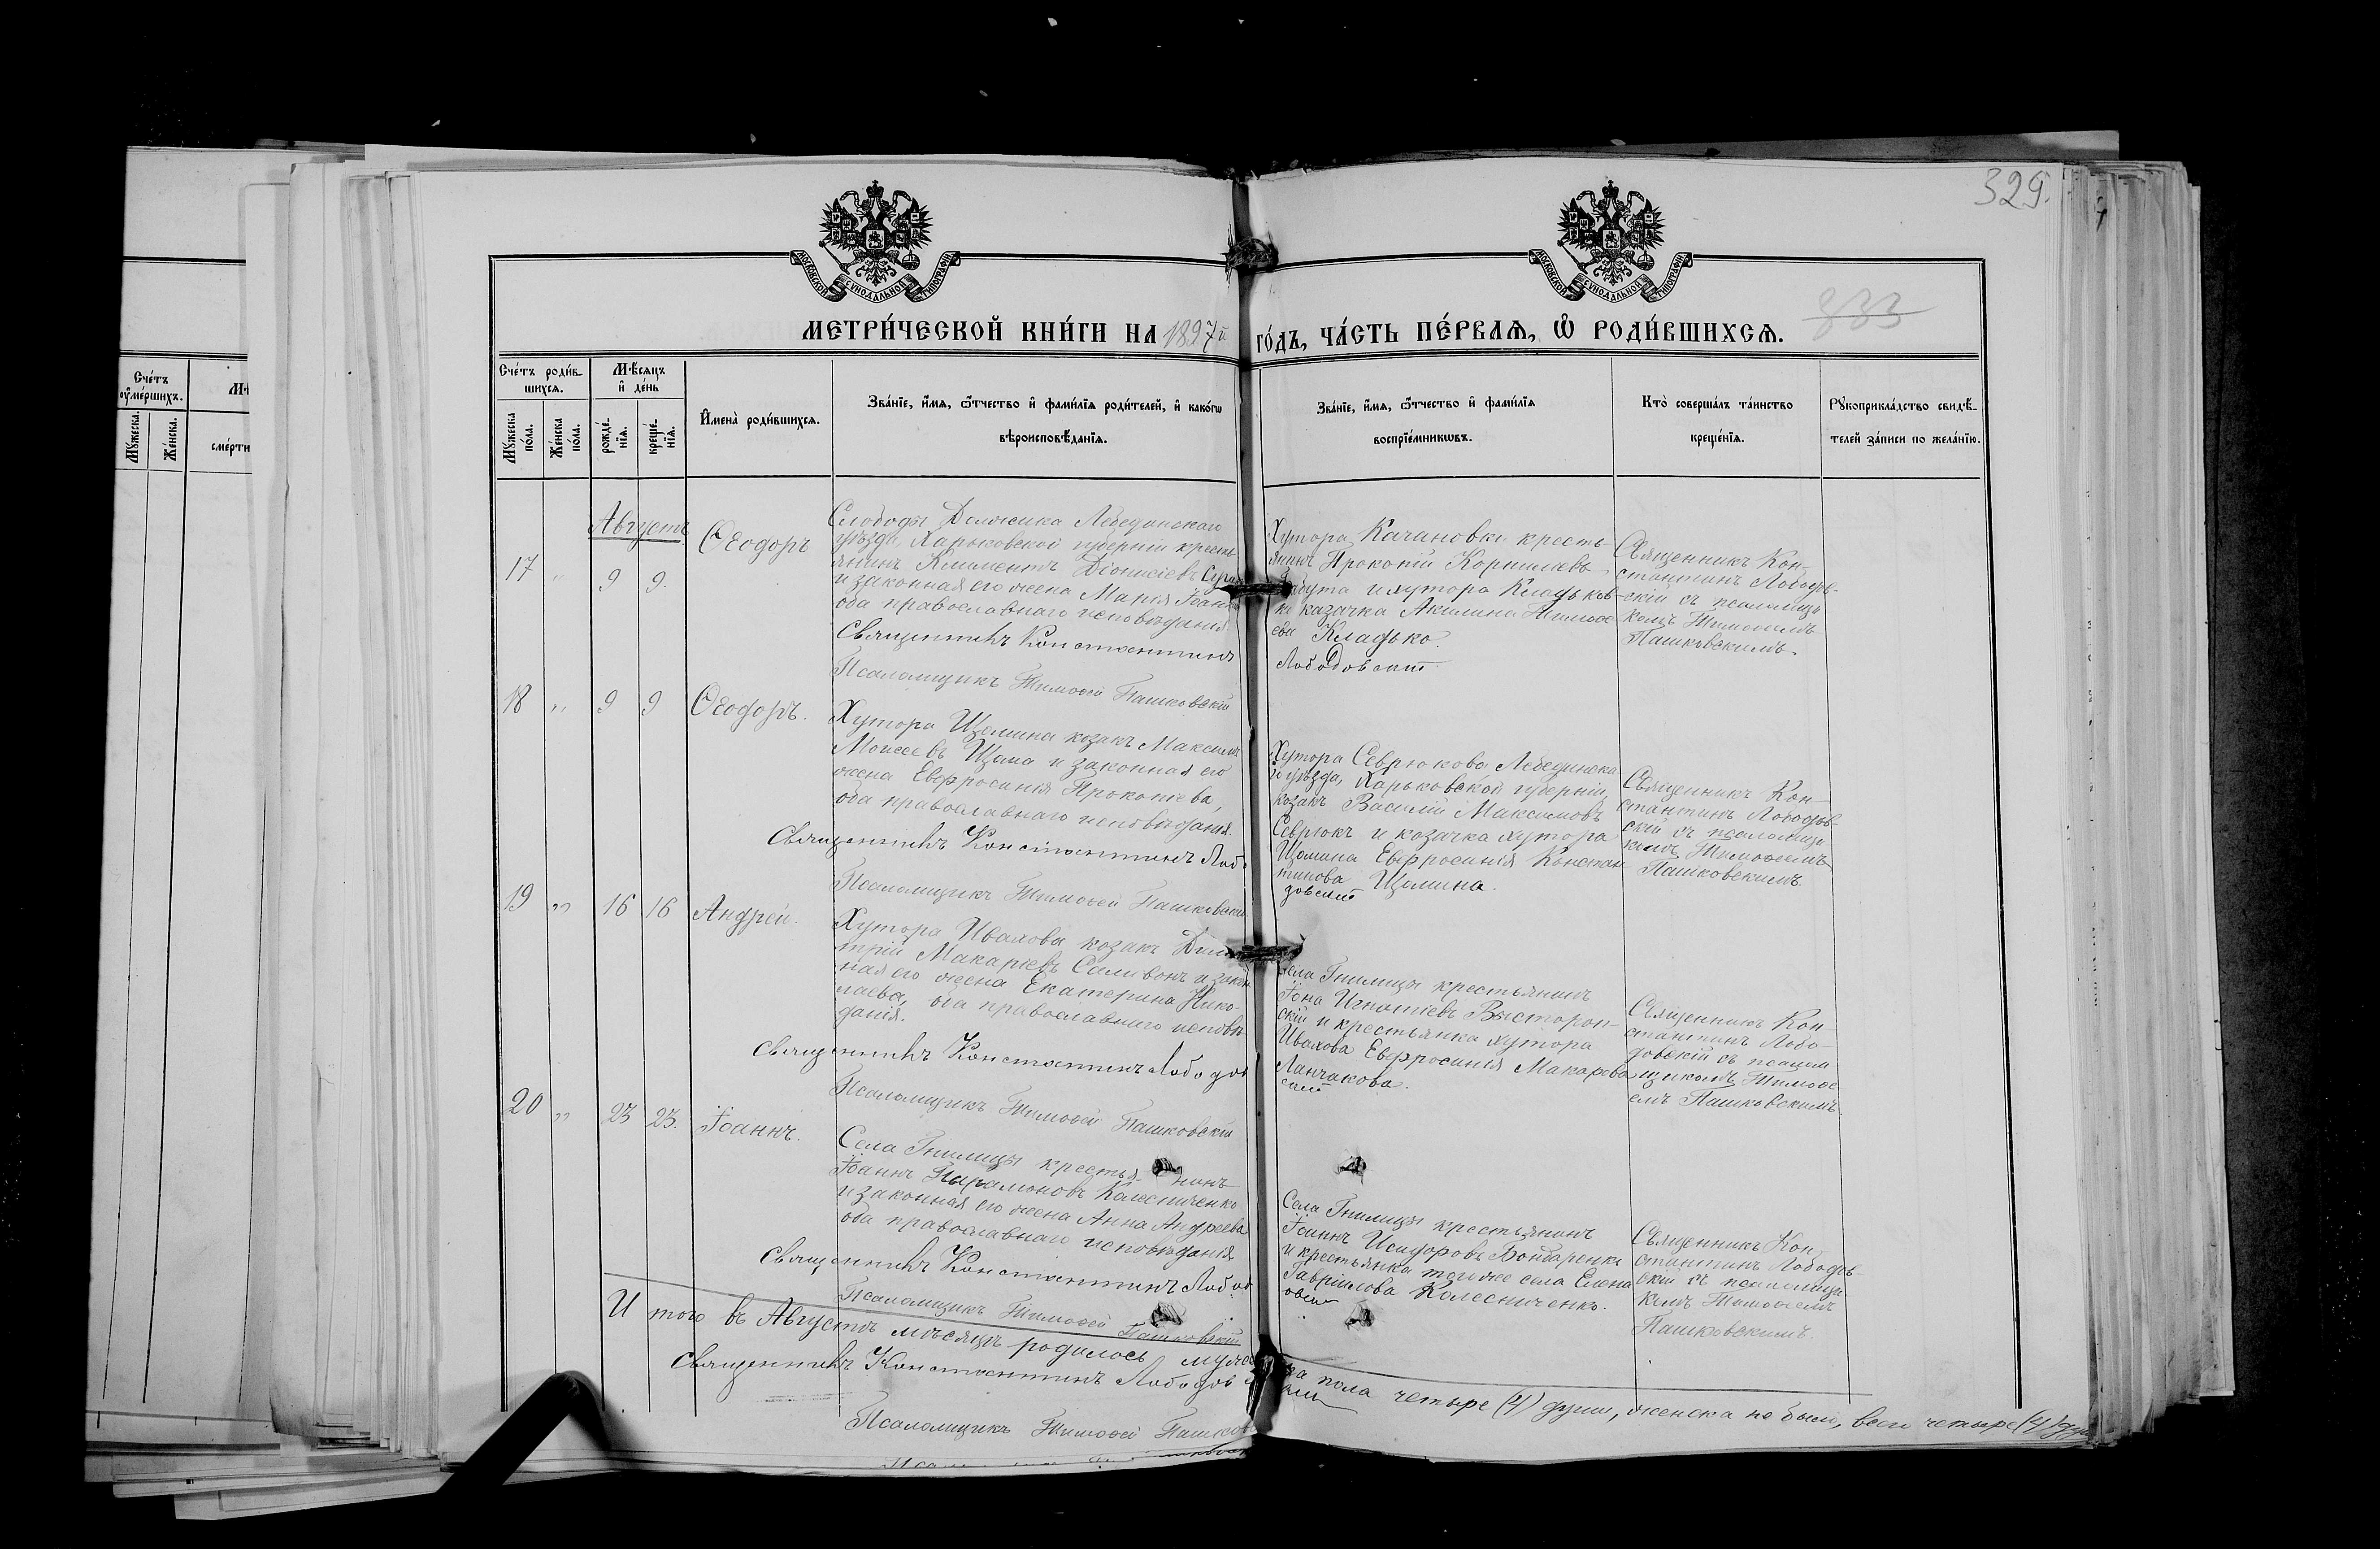 329.
МОСКОВСКОЙ СУНОДАЛЬНОЙ ТИПОГРАФІИ
МОСКОВСКОЙ СУНОДАЛЬНОЙ ТИПОГРАФІИ
833
МЕТРИ́ЧЕСКОЙ КНИ́ГИ НА 1897й ГО́ДЪ, ЧА́СТЬ ПЕ́РВАѦ, Ѽ РОДИ́ВШИХСѦ.
Сче́тъ
ᲂумершихъ.
Мꙋжеска.
Же́нска.
сме́рти
Сче́тъ роди́в-
шихсѧ.
Мꙋжеска по́ла.
Же́нска по́ла.
Мѣ́сѧцъ
и҆ де́нь
рожде́-
нїѧ.
креще́-
нїѧ.
И҆мена̀ роди́вшихсѧ.
Зва́нїе, и҆́мѧ, ѻ҆́тчество и҆ фами́лїѧ роди́телей, и҆ како́гѡ
вѣроисповѣ́данїѧ.
Зва́нїе, и҆́мѧ, ѻ҆́тчество и҆ фами́лїѧ
воспрїе́мникѡвъ.
Кто̀ соверша́лъ та́инство
креще́нїѧ.
Рꙋкоприкла́дство свидѣ́-
телей за́писи по жела́нїю.
Августъ
17 " 9 9. Ѳеодоръ
Слободы Должика Лебединскаго
уѣзда, Харьковской губерніи кресть-
янинъ Климентъ Діонисіевъ
и законная его жена Марія
оба православнаго исповѣданія.
Священникъ Константинъ
Псаломщикъ Тимоѳей Пашковскій
Хутора Качановки кресть-
янинъ Прокопій Корниліевъ
и хутора Кладьков-
ки казачка Акилина Тимоѳе-
ева Кладько.
Лободовскій
Священникъ Кон-
стантинъ Лободов-
скій съ псаломщи-
комъ Тимоѳеемъ
Пашковскимъ.
18 " 9 9 Ѳеодоръ.
Хутора Щомина козакъ Максимъ
Моисеевъ Щома и законная его
жена Евфросинія Прокопіева,
оба православнаго исповѣданія.
Священникъ Константинъ Лобо
Псаломщикъ Тимоѳей Пашковскій
Хутора Севрюкова Лебединска-
го уѣзда, Харьковской губерніи,
козакъ Василій Максимовъ
Севрюкъ и козачка хутора
Щомина Евфросинія Констан-
тинова Щомина.
довскій
Священникъ Кон-
стантинъ Лободов-
скій съ псаломщи-
комъ Тимоѳеемъ
Пашковскимъ.
19 " 16 16 Андрей.
Хутора Ивахова козакъ Дими-
трій Макаріевъ Саливонъ и закон-
ная его жена Екатерина Нико-
лаева, оба православнаго исповѣ-
данія.
Священникъ Константинъ Лободов
Псаломщикъ Тимоѳей Пашковскій
Села Гнилицы крестьянинъ
Іона Игнатіевъ Высторон-
скій и крестьянка хутора
Ивахова Евфросинія Макарова
Ланчакова.
скій
Священникъ Кон-
стантинъ Лобо-
довскій съ псалом-
щикомъ Тимоѳе-
емъ Пашковскимъ.
20 " 23 23. Іоаннъ.
Села Гнилицы крестья-нинъ
Іоаннъ Парамоновъ Колесниченко
и законная его жена Анна Андреева
оба православнаго исповѣданія
Священникъ Константинъ Лобод
Псаломщикъ Тимоѳей Пашковскій
Села Гнилицы крестьянинъ
Іоаннъ Исидоровъ Бондаренко
и крестьянка того же села Елена
Гавріилова Колесниченко.
овскій
Священникъ Кон-
стантинъ Лободов-
скій съ псаломщи-
комъ Тимоѳеемъ
Пашковскимъ.
Итого въ Августѣ мѣсяцѣ родилось мужеска пола четыре (4) души, женска не было, всего четыре (4) души
Священникъ Константинъ Лободовскій
Псаломщикъ Тимоѳей Пашков